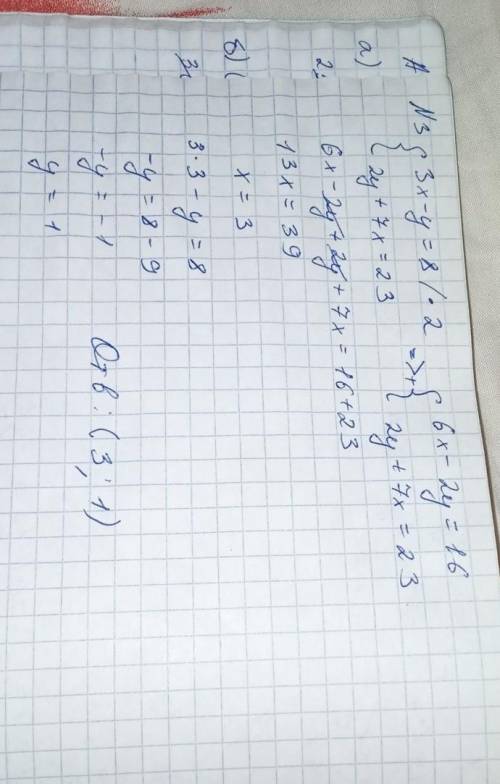 №3 { 3x - y = 8 / · 2 => + { 6x - 2y = 16
{ 2y + 7x = 23 { 2y + 7x = 23
а)
6x - 2y + 2y + 7x = 16 + 23
13x = 39
x = 3
б) (
3 · 3 - y = 8
-y = 8 - 9
-y = -1
y = 1
Отв: (3; 1)